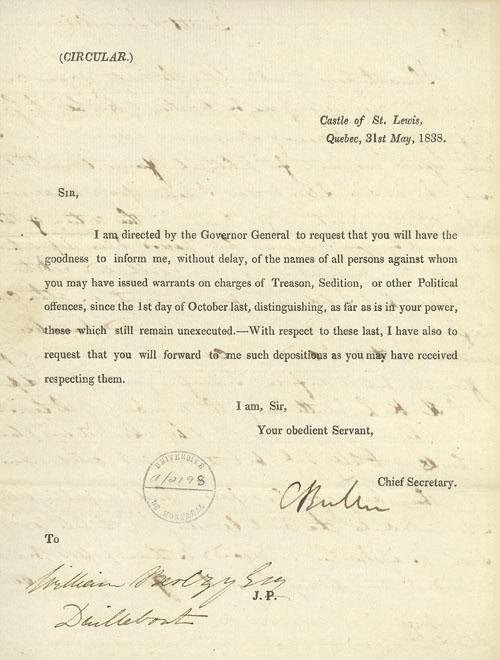 (CIRCULAR.)
Castle of St. Lewis,
Quebec, 31st May, 1838.
SIR,
I am directed by the Governor General to request that you will have the
goodness to inform me, without delay, of the names of all persons against whom
you may have issued warrants on charges of Treason, Sedition, or other Political
offences, since the 1st day of October last, distinguishing, as far as is in your power,
those which still remain unexecuted.—With respect to these last, I have also to
request that you will forward to me such depositions as you may have received
respecting them.
I am, Sir,
Your obedient Servant,
Chief Secretary.
UNIVERSITÉ
DE MONTRÉAL
To
William Berczy Esq
J. P.
Dailleboat